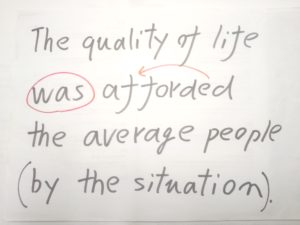 The quality of life
was afforded
the average people
(by the situation).